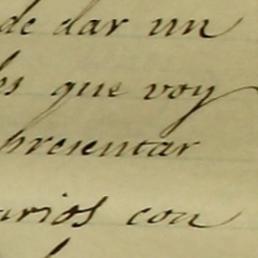 de dar un
que voy
presentar
arios con